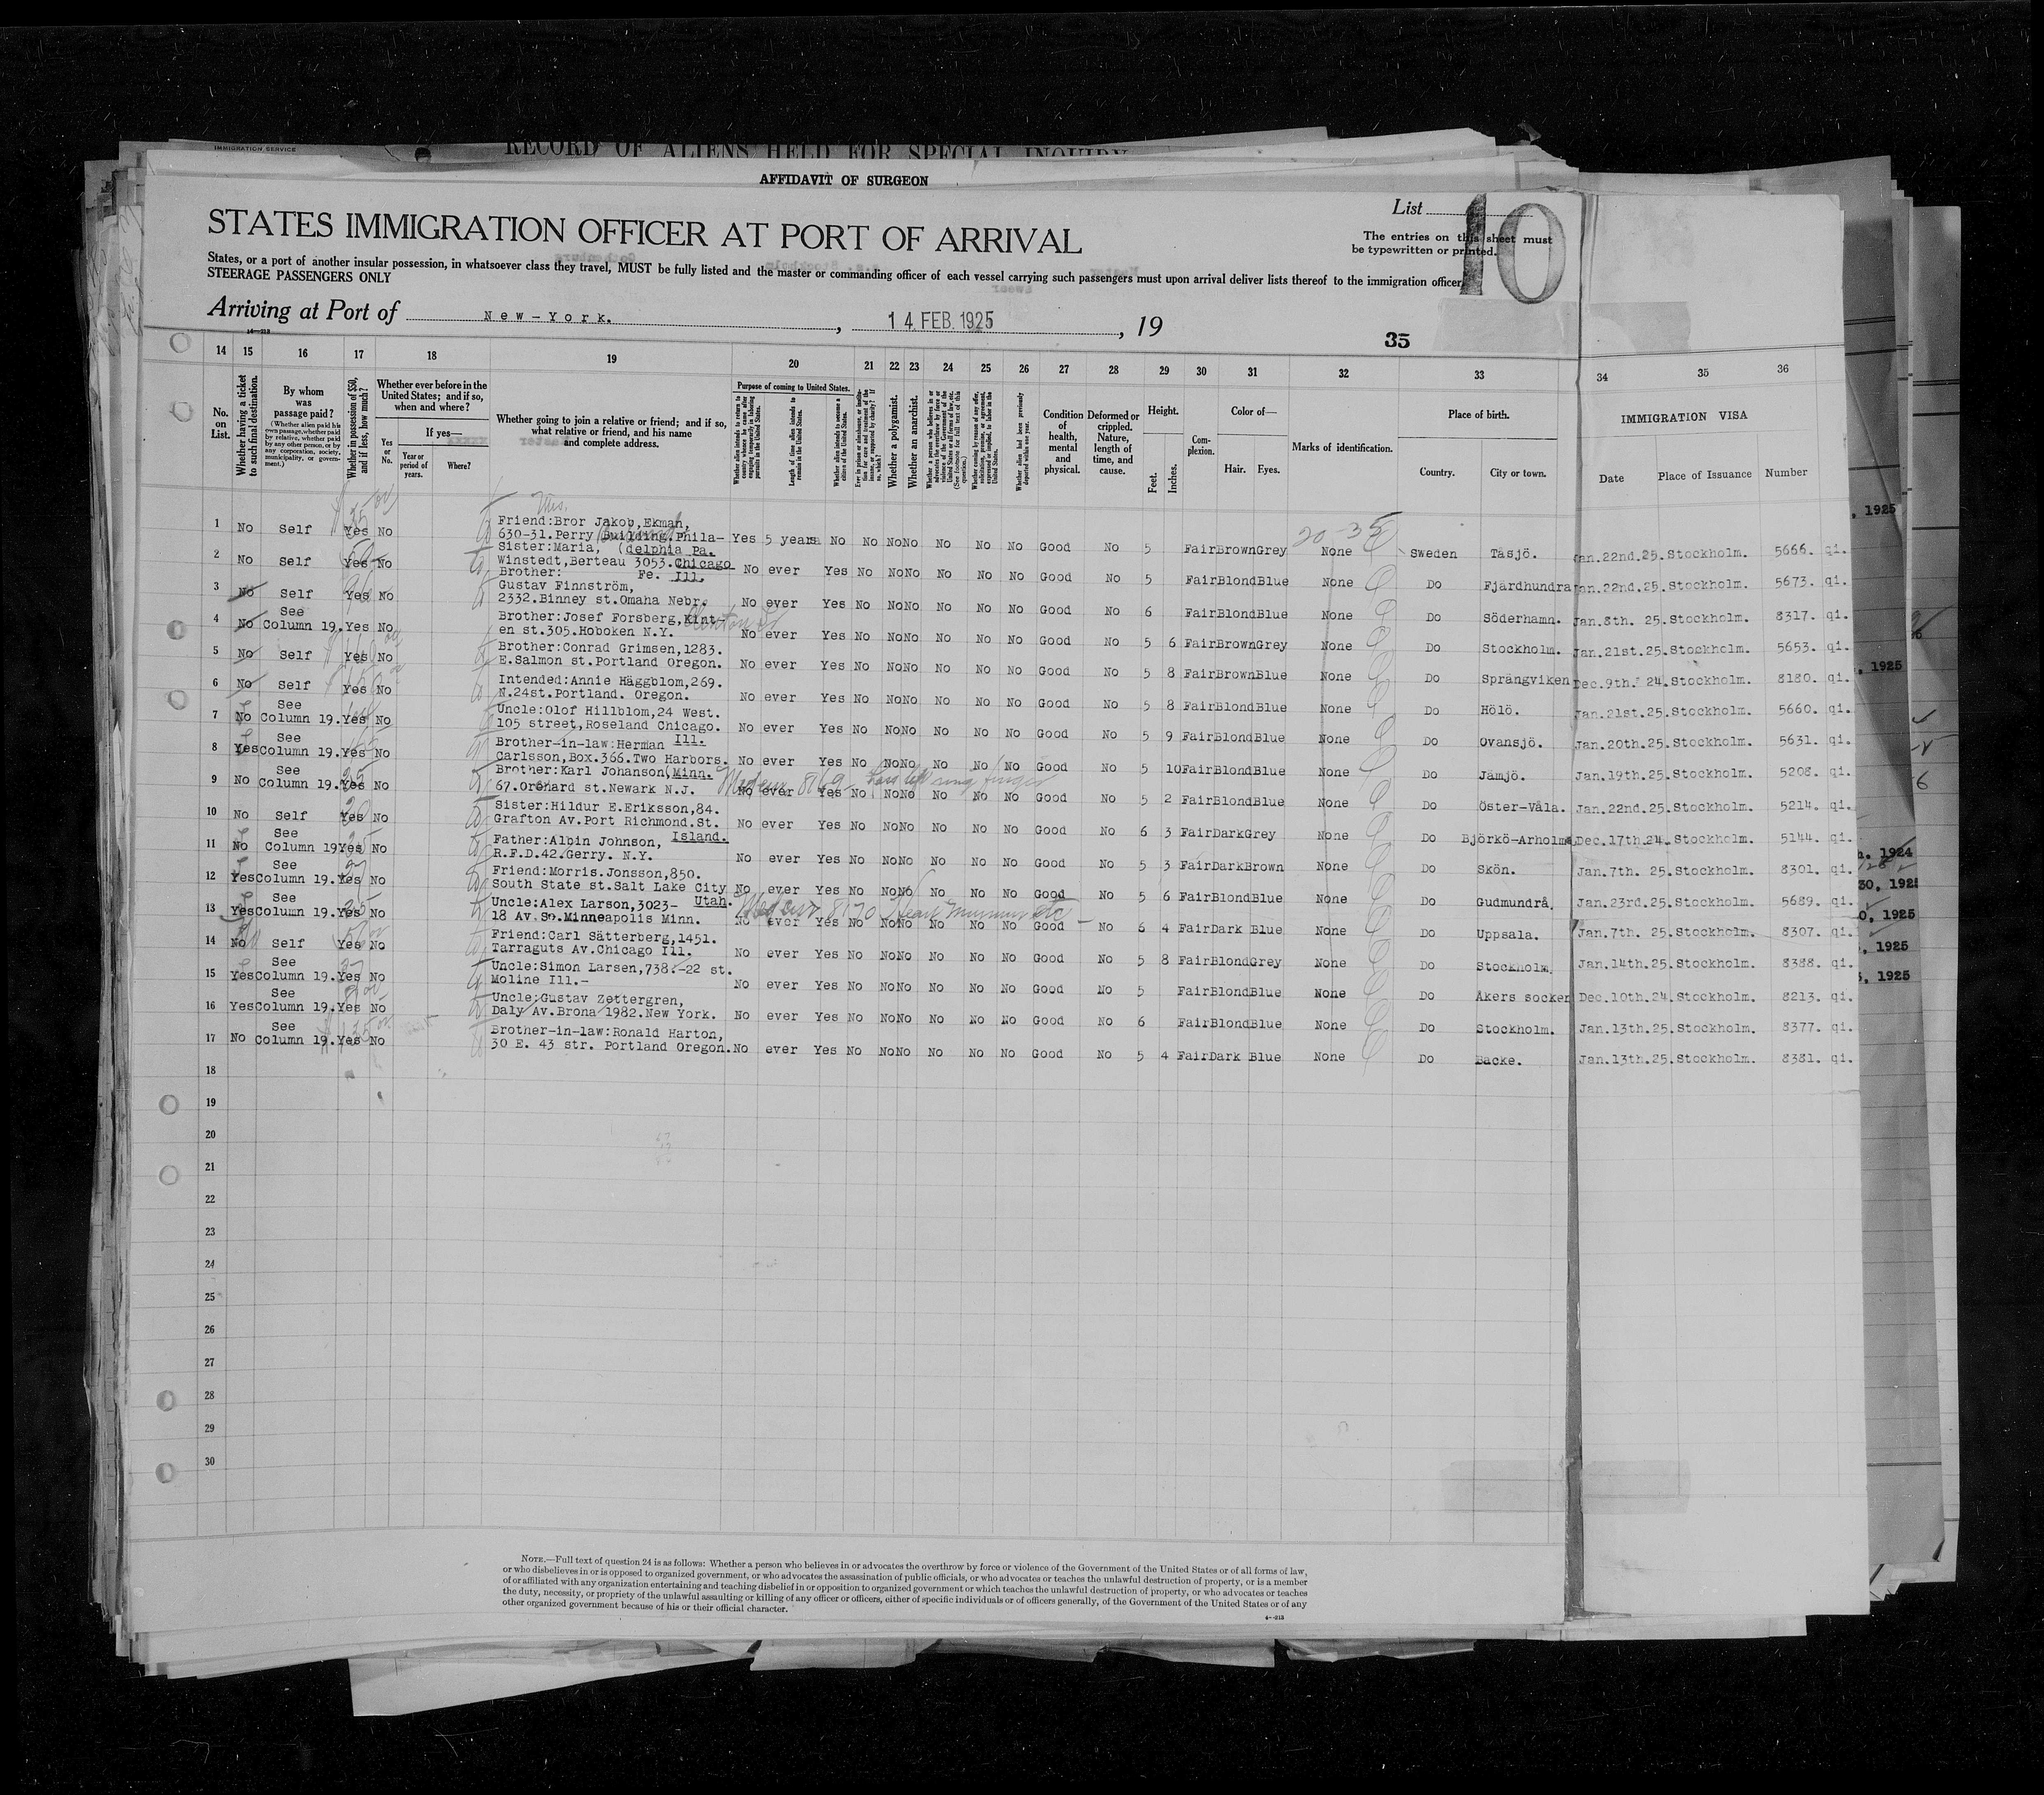 IMMIGRATION SERVICE
RECORD OF ALIENS HELD FOR SPECIAL INQUIRY
AFFIDAVIT OF SURGEON
List
10
STATES IMMIGRATION OFFICER AT PORT OF ARRIVAL
The entries on this sheet must
be typewritten or printed.
States, or a port of another insular possession, in whatsoever class they travel, MUST be fully listed and the master or commanding officer of each vessel carrying such passengers must upon arrival deliver lists thereof to the immigration officer
STEERAGE PASSENGERS ONLY
Arriving at Port of New-York. , 14 FEB. 1925 , 19
35
14 15 16 17 18 19 20 21 22 23 24 25 26 27 28 29 30 31 32 33 34 35 36
No. on List.
Whether having a ticket to such final destination.
By whom was passage paid?
(Whether alien paid his own passage, whether paid by relative, whether paid by any other person, or by any corporation, society, municipality, or government.)
Whether in possession of $50, and if less, how much?
Whether ever before in the United States; and if so, when and where?
Yes or No.
If yes—
Year or period of years.
Where?
Whether going to join a relative or friend; and if so, what relative or friend, and his name and complete address.
Purpose of coming to United States.
Whether alien intends to return to country whence he came after engaging temporarily in laboring pursuits in the United States.
Length of time alien intends to remain in the United States.
Whether alien intends to become a citizen of the United States.
Ever in prison or almshouse, or institution for care and treatment of the insane, or supported by charity? If so, which?
Whether a polygamist.
Whether an anarchist.
Whether a person who believes in or advocates the overthrow by force or violence of the Government of the United States or all forms of law, etc. (See footnote for full text of this question.)
Whether coming by reason of any offer, solicitation, promise, or agreement, expressed or implied, to labor in the United States.
Whether alien had been previously deported within one year.
Condition of health, mental and physical.
Deformed or crippled. Nature, length of time, and cause.
Height.
Feet. Inches.
Complexion.
Color of—
Hair. Eyes.
Marks of identification.
Place of birth.
Country. City or town.
IMMIGRATION VISA
Date Place of Issuance Number
Mrs.
20-35
1 No Self Yes No Friend:Bror Jakob,Ekman, 630-31.Perry Building.Phila-(delphia Pa. Yes 5 years No No No No No No No Good No 5 Fair Brown Grey None Sweden Tåsjö. Jan.22nd.25.Stockholm. 5666. qi.
2 No Self Yes No Sister:Maria, Winstedt,Berteau 3053.Chicago Ill. No ever Yes No No No No No No Good No 5 Fair Blond Blue None Do Fjärdhundra Jan.22nd.25.Stockholm. 5673. qi.
3 No Self Yes No Brother: Fe. Gustav Finnström, 2332.Binney st.Omaha Nebr. No ever Yes No No No No No No Good No 6 Fair Blond Blue None Do Söderhamn. Jan.8th. 25.Stockholm. 8317. qi.
4 No See Column 19. Yes No Brother:Josef Forsberg,Kint-en st.305.Hoboken N.Y. No ever Yes No No No No No No Good No 5 6 Fair Brown Grey None Do Stockholm. Jan.21st.25.Stockholm. 5653. qi.
Clinton St
5 No Self Yes No Brother:Conrad Grimsen,1283. E.Salmon st.Portland Oregon. No ever Yes No No No No No No Good No 5 8 Fair Brown Blue None Do Sprängviken Dec.9th. 24.Stockholm. 8180. qi.
6 No Self Yes No Intended:Annie Häggblom,269. N.24st.Portland. Oregon. No ever Yes No No No No No No Good No 5 8 Fair Blond Blue None Do Hölö. Jan.21st.25.Stockholm. 5660. qi.
7 No See Column 19. Yes No Uncle:Olof Hillblom,24 West. 105 street,Roseland Chicago. Ill. No ever Yes No No No No No No Good No 5 9 Fair Blond Blue None Do Ovansjö. Jan.20th.25.Stockholm. 5631. qi.
8 Yes See Column 19. Yes No Brother-in-law:Herman Carlsson,Box.366.Two Harbors.(Minn. No ever Yes No No No No No No Good No 5 10 Fair Blond Blue None Do Jämjö. Jan.19th.25.Stockholm. 5208. qi.
Med cer 8169 Loss left ring finger
9 No See Column 19. Yes No Brother:Karl Johanson 67.Orchard st.Newark N.J. No ever Yes No No No No No No Good No 5 2 Fair Blond Blue None Do Öster-Våla. Jan.22nd.25.Stockholm. 5214. qi.
10 No Self Yes No Sister:Hildur E.Eriksson,84. Grafton Av.Port Richmond.St. Island. No ever Yes No No No No No No Good No 6 3 Fair Dark Grey None Do Björkö-Arholma Dec.17th.24.Stockholm. 5144. qi.
11 No See Column 19 Yes No Father:Albin Johnson, R.F.D.42.Gerry. N.Y. No ever Yes No No No No No No Good No 5 3 Fair Dark Brown None Do Skön. Jan.7th. 25.Stockholm. 8301. qi.
12 Yes See Column 19. Yes No Friend:Morris.Jonsson,850. South State st.Salt Lake City Utah. No ever Yes No No No No No No Good No 5 6 Fair Blond Blue None Do Gudmundrå. Jan.23rd.25.Stockholm. 5689. qi.
Med cer 8170 Heart Murmur etc
13 Yes See Column 19. Yes No Uncle:Alex Larson,3023- 18 Av.So.Minneapolis Minn. No ever Yes No No No No No No Good No 6 4 Fair Dark Blue None Do Uppsala. Jan.7th. 25.Stockholm. 8307. qi.
14 No Self Yes No Friend:Carl Sätterberg,1451. Tarraguts Av.Chicago Ill. No ever Yes No No No No No No Good No 5 8 Fair Blond Grey None Do Stockholm. Jan.14th.25.Stockholm. 8388. qi.
15 Yes See Column 19. Yes No Uncle:Simon Larsen,738.-22 st. Moline Ill.- No ever Yes No No No No No No Good No 5 Fair Blond Blue None Do Åkers socken Dec.10th.24.Stockholm. 8213. qi.
16 Yes See Column 19. Yes No Uncle:Gustav Zettergren, Daly Av.Brona 1982.New York. No ever Yes No No No No No No Good No 6 Fair Blond Blue None Do Stockholm. Jan.13th.25.Stockholm. 8377. qi.
17 No See Column 19. Yes No Brother-in-law:Ronald Harton, 30 E. 43 str. Portland Oregon. No ever Yes No No No No No No Good No 5 4 Fair Dark Blue None Do Backe. Jan.13th.25.Stockholm. 8381. qi.
18
19
20
21
22
23
24
25
26
27
28
29
30
, 1925
, 1925
1924
30, 1925
0, 1925
, 1925
, 1925
NOTE.—Full text of question 24 is as follows: Whether a person who believes in or advocates the overthrow by force or violence of the Government of the United States or of all forms of law,
or who disbelieves in or is opposed to organized government, or who advocates the assassination of public officials, or who advocates or teaches the unlawful destruction of property, or is a member
of or affiliated with any organization entertaining and teaching disbelief in or opposition to organized government or which teaches the unlawful destruction of property, or who advocates or teaches
the duty, necessity, or propriety of the unlawful assaulting or killing of any officer or officers, either of specific individuals or of officers generally, of the Government of the United States or of any
other organized government because of his or their official character.